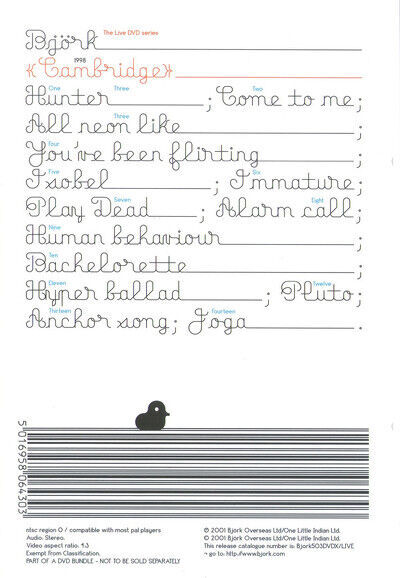 Björk The Live DVD series
1998
«Cambridge»
One Three Two
Hunter ; Come to me;
Three
All neon like ;
Four
You've been flirting ;
Five Six
Isobel ; Immature;
Seven Eight
Play Dead ; Alarm call;
Nine
Human behaviour ;
Ten
Bachelorette ;
Eleven Twelve
Hyper ballad ; Pluto;
Thirteen Fourteen
Anchor song; Joga .
5 016958 064303
ntsc region 0 / compatible with most pal players
Audio. Stereo.
Video aspect ratio. 4:3
Exempt from Classification.
PART OF A DVD BUNDLE - NOT TO BE SOLD SEPARATELY
℗ 2001 Bjork Overseas Ltd/One Little Indian Ltd.
© 2001 Bjork Overseas Ltd/One Little Indian Ltd.
This release catalogue number is: Bjork503DVDX/LIVE
go to: http://www.bjork.com